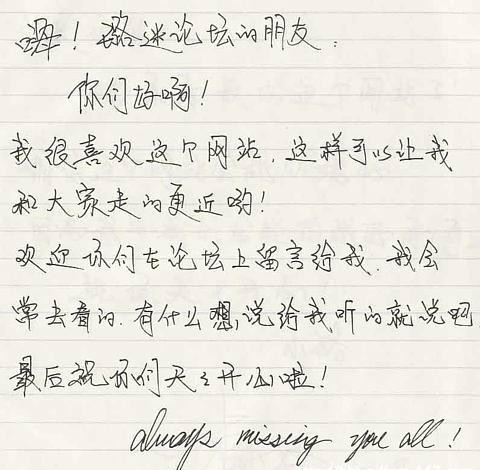 嗨！璐迷论坛的朋友：
你们好啊！
我很喜欢这个网站，这样可以让我
和大家走的更近哟！
欢迎你们在论坛上留言给我，我会
常去看的，有什么想说给我听的就说吧
最后祝你们天天开心啦！
always missing you all！